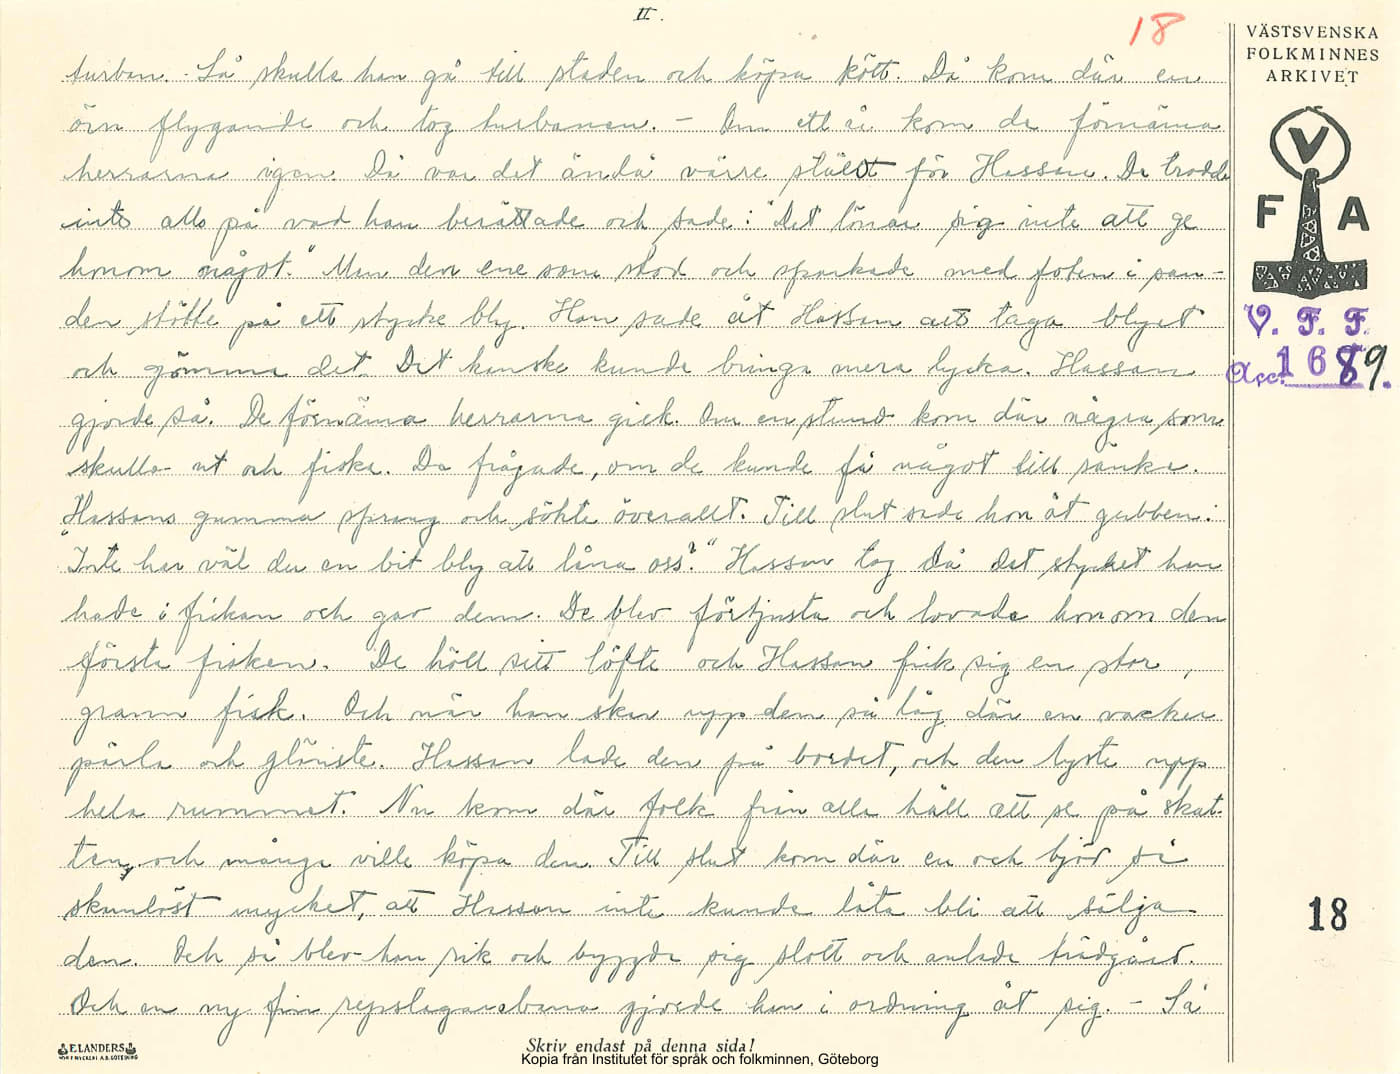 II.
18
VÄSTSVENSKA
FOLKMINNES
ARKIVET
V
F A
V. F. F.
Acc. 1689.
turban. - Så skulle han gå till staden och köpa kött. Då kom där en
örn flygande och tog turbanen. - Om ett år kom de förnäma
herrarna igen. Då var det ändå värre ställt för Hassan. De trodde
inte alls på vad han berättade och sade: "Det lönar sig inte att ge
honom något." Men den ene som stod och sparkade med foten i san-
den stötte på ett stycke bly. Han sade åt Hassan att taga blyet
och gömma det. Det kanske kunde bringa mera lycka. Hassan
gjorde så. De förnäma herrarna gick. Om en stund kom där några som
skulle ut och fiska. De frågade, om de kunde få något till sänke.
Hassans gumma sprang och sökte överallt. Till slut sade hon åt gubben:
"Inte har väl du en bit bly att låna oss?" Hassan tog då det stycket han
hade i fickan och gav dem. De blev förtjusta och lovade honom den
första fisken. De höll sitt löfte och Hassan fick sig en stor,
grann fisk. Och när han skar upp den så låg där en vacker
pärla och glänste. Hassan lade den på bordet, och den lyste upp
hela rummet. Nu kom där folk från alla håll att se på skat-
ten, och många ville köpa den. Till slut kom där en och bjöd så
skamlöst mycket, att Hassan inte kunde låta bli att sälja
den. Och så blev han rik och byggde sig slott och anlade trädgård.
Och en ny fin repslagarebana gjorde han i ordning åt sig. - Så
18
ELANDERS
Skriv endast på denna sida!
Kopia från Institutet för språk och folkminnen, Göteborg